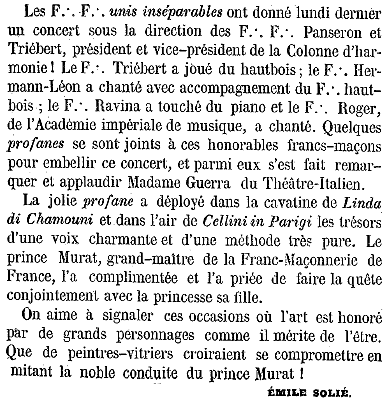 Les F.·. F.·. unis inséparables ont donné lundi dernier
un concert sous la direction des F.·. F.·. Panseron et
Triébert, président et vice-président de la Colonne d'har-
monie! Le F.·. Triébert a joué du hautbois; le F.·. Her-
mann-Léon a chanté avec accompagnement du F.·. haut-
bois; le F.·. Ravina a touché du piano et le F.·. Roger,
de l'Académie impériale de musique, a chanté. Quelques
profanes se sont joints à ces honorables francs-maçons
pour embellir ce concert, et parmi eux s'est fait remar-
quer et applaudir Madame Guerra du Théâtre-Italien.
La jolie profane a déployé dans la cavatine de Linda
di Chamouni et dans l'air de Cellini in Parigi les trésors
d'une voix charmante et d'une méthode très pure. Le
prince Murat, grand-maître de la Franc-Maçonnerie de
France, l'a complimentée et l'a priée de faire la quête
conjointement avec la princesse sa fille.
On aime à signaler ces occasions où l'art est honoré
par de grands personnages comme il mérite de l'être.
Que de peintres-vitriers croiraient se compromettre en
mitant la noble conduite du prince Murat!
ÉMILE SOLIÉ.